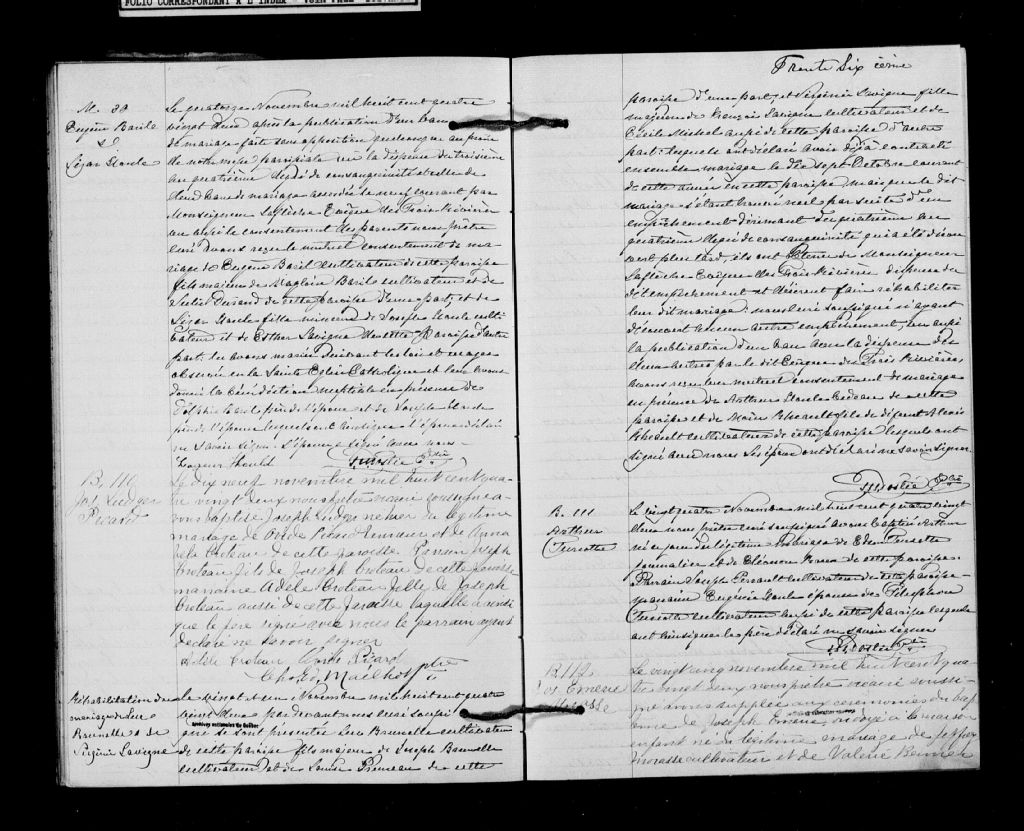 FOLIO CORRESPONDANT A L'INDEX - VOIR PAGE
M. 30
Eugène Barile
&
Le quatorze Novembre mil huit cent quatre
vingt deux après la publication d'un ban
de mariage faite sans opposition quelconque au prône
de notre messe paroissiale vu la dispense du troisième
au quatrième degré de consanguinité et celle de
deux bans de mariage accordée le neuf courant par
Monseigneur Laflèche Evêque des Trois Rivières
vu aussi le consentement des parents nous prêtre
curé avons reçu le mutuel consentement de ma-
riage de Eugène Baril cultivateur de cette paroisse
fils majeur de Magloire Barile cultivateur et de
Durand de cette paroisse d'une part, et de
fille mineure de Joseph culti-
vateur et de Esther Lavigne de cette Paroisse d'autre
part, les avons mariés suivant les lois et usages
observés en la Sainte Eglise Catholique et leur avons
donné la bénédiction nuptiale en présence de
père de l'époux et de Joseph
père de l'épouse lesquels ont
ne savoir signer. L'épouse a signé avec nous.
Ptre
B. 110
Jos. Ludger
Picard
Le dix neuf novembre mil huit cent qua-
tre vingt deux nous prêtre vicaire soussigné a-
vons baptisé Joseph Ludger né hier du légitime
mariage de Ovide Picard et de Anna
Croteau de cette paroisse. Parrain Joseph
Croteau fils de Joseph Croteau de cette paroisse
marraine Adèle Croteau fille de Joseph
Croteau aussi de cette paroisse laquelle a ainsi
que le père signé avec nous le parrain ayant
déclaré ne savoir signer
Adèle Croteau Ovide Picard
Mailhot ptre
Réhabilitation du
mariage de Léu
Brunelle & de
Virginie Lavigne
Le vingt et un Novembre mil huit cent quatre
vingt deux par devant nous curé soussi-
gné se sont présentés Léu Brunelle cultivateur
Archives nationales du Québec
de cette paroisse fils majeur de Joseph Brunelle
cultivateur et de Louise Primeau de cette
Trente Sixième
paroisse d'une part, et Virginie Lavigne fille
majeure de François Lavigne cultivateur et de
Cécile Michel aussi de cette paroisse d'autre
part: lesquels ont déclaré avoir déjà contracté
ensemble mariage le dix sept Octobre courant
de cette année en cette paroisse mais que le dit
mariage s'étant trouvé nul par suite d'un
empêchement dirimant du quatrième au
quatrième degré de consanguinité qui a été décou-
vert plus tard, ils ont obtenu de Monseigneur
Laflèche Evêque des Trois Rivières dispense du
dit empêchement et désirent faire réhabiliter
leur dit mariage: nous curé soussigné n'ayant
découvert aucun autre empêchement, vu aussi
la publication d'un ban avec la dispense des
deux autres par le dit Evêque des Trois Rivières
avons reçu leur mutuel consentement de mariage
en présence de Arthur bedeau de cette
paroisse et de Moïse Rheault fils de défunt Alexis
Rheault cultivateur de cette paroisse lesquels ont
signé avec nous. Les époux ont déclaré ne savoir signer.
Ptre
B. 111
Arthur
Turcotte
Le vingt quatre Novembre mil huit cent quatre vingt
deux nous prêtre curé soussigné avons baptisé Arthur
né ce jour du légitime mariage de Turcotte
journalier et de Eléonore de cette paroisse.
Parrain Joseph Perrault cultivateur de cette paroisse
marraine Eugénie épouse de Télesphore
Turcotte cultivateur aussi de cette paroisse lesquels
ont ainsi que le père déclaré ne savoir signer
Ptre
B. 112
Jos. Emerie
Le vingt cinq novembre mil huit cent qua-
tre vingt deux nous prêtre vicaire soussi-
gné avons suppléé aux cérémonies du bap-
Archives nationales du Québec
tême de Joseph Emerie, ondoyé à la maison
enfant né du légitime mariage de
cultivateur et de Valérie